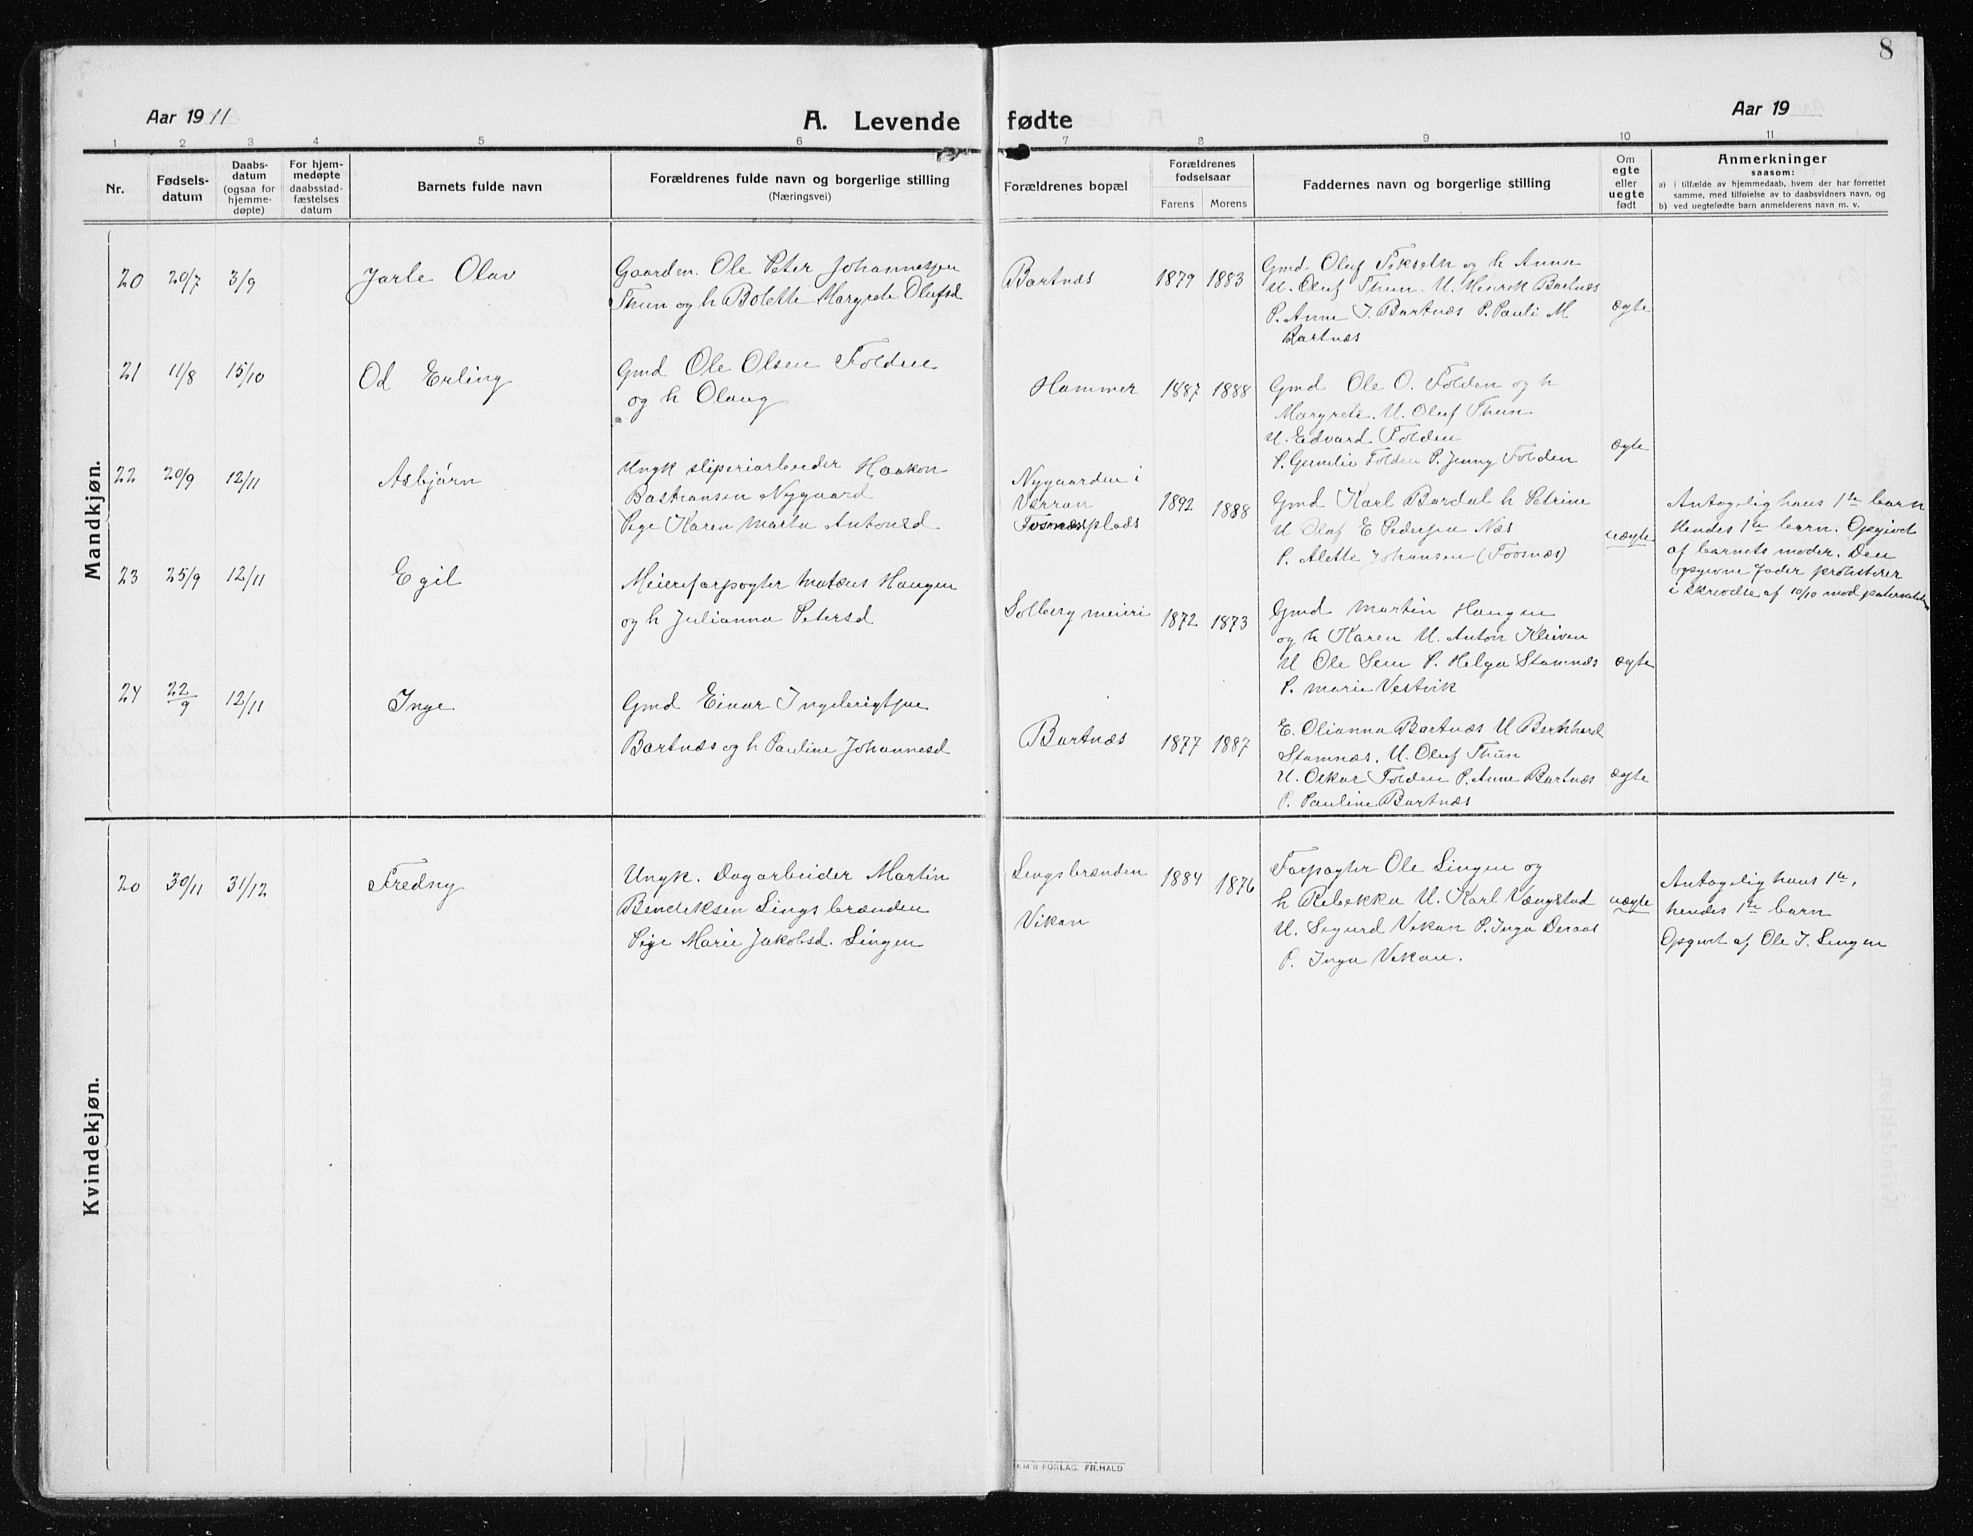 8
Aar 1911
A. Levende fødte
Aar 19
1 2 3 4 5 6 7 8 9 10 11
Nr.
Fødsels-
datum
Daabs-
datum
(ogsaa for
hjemme-
døpte)
For hjem-
medøpte
daabsstad-
fæstelses
datum
Barnets fulde navn
Forældrenes fulde navn og borgerlige stilling
(Næringsvei)
Forældrenes bopæl
Forældrenes
fødselsaar
Farens Morens
Faddernes navn og borgerlige stilling
Om
egte
eller
uegte
født
Anmerkninger
saasom:
a) i tilfælde av hjemmedaab, hvem der har forrettet
samme, med tilføielse av to daabsvidners navn, og
b) ved uegtefødte barn anmelderens navn m. v.
Mandkjøn.
20 20/7 3/9 Jarle Olav
Gaardm. Ole Peter Johannesen
Thun og h Bolette Margrete Olufsd
Bartnæs 1879 1883
Gmd Oluf og h Anna
U. Oluf Thun. U. Henrik Bartnæs
P. Anne J. Bartnæs P. Pauli M
Bartnæs
ægte
21 11/8 15/10 Od Erling
Gmd Ole Olsen Folden
og h Olaug
Hammer 1887 1888
Gmd Ole O. Folden og h
Margrete. U. Oluf Thun
U. Edvard Folden
P. Gunelie Folden P. Jenny Folden
ægte
22 20/9 12/11 Asbjørn
Ungk sliperiarbeider Haakon
Bastiansen Nygaard
Pige Karen Marta Antonsd.
Nygaarden i
Værran
Fosnæsplads
1892 1888
Gmd Karl Bardal h Petrine
U Olaf E Pedersen Næs
P. Alette Johansen (Fosnæs)
uægte
Antagelig hans 1te barn
Hendes 1te barn. Opgivet
af barnets moder. Den
opgivne fader protesterer
i skrivelse af 10/10 mod
23 25/9 12/11 Egil
Meieriforpagter Mateus Haugen
og h Julianna Petersd
Solberg meieri 1872 1873
Gmd Martin Haugen
og h Karen U. Anton Kleven
U Ole Sem P. Helga Stamnæs
P. Marie Vestvik
ægte
24 22/9 12/11 Inge
Gmd Einar Ingebrigtsen
Bartnæs og h Pauline Johannesd
Bartnæs 1877 1887
E. Olianna Bartnæs U Bernhard
Stamnæs. U. Oluf Thun
U. Oskar Folden P. Anne Bartnæs
P. Pauline Bartnæs
ægte
Kvindekjøn.
20 30/11 31/12 Fredny
Ungk. Dagarbeider Martin
Bendiksen Lingsbrænden
Pige Marie Jakobsd. Lingen
Lingsbrænden
Vikan
1884 1876
Forpagter Ole Lingen og
h Rebekka U. Karl Vængstad
U. Sigurd Vikan P. Inga Deraas
P. Inga Vikan.
uægte
Antagelig hans 1te,
hendes 1te barn
Opgivet af Ole J. Lingen
FORLAG. FR. HALD